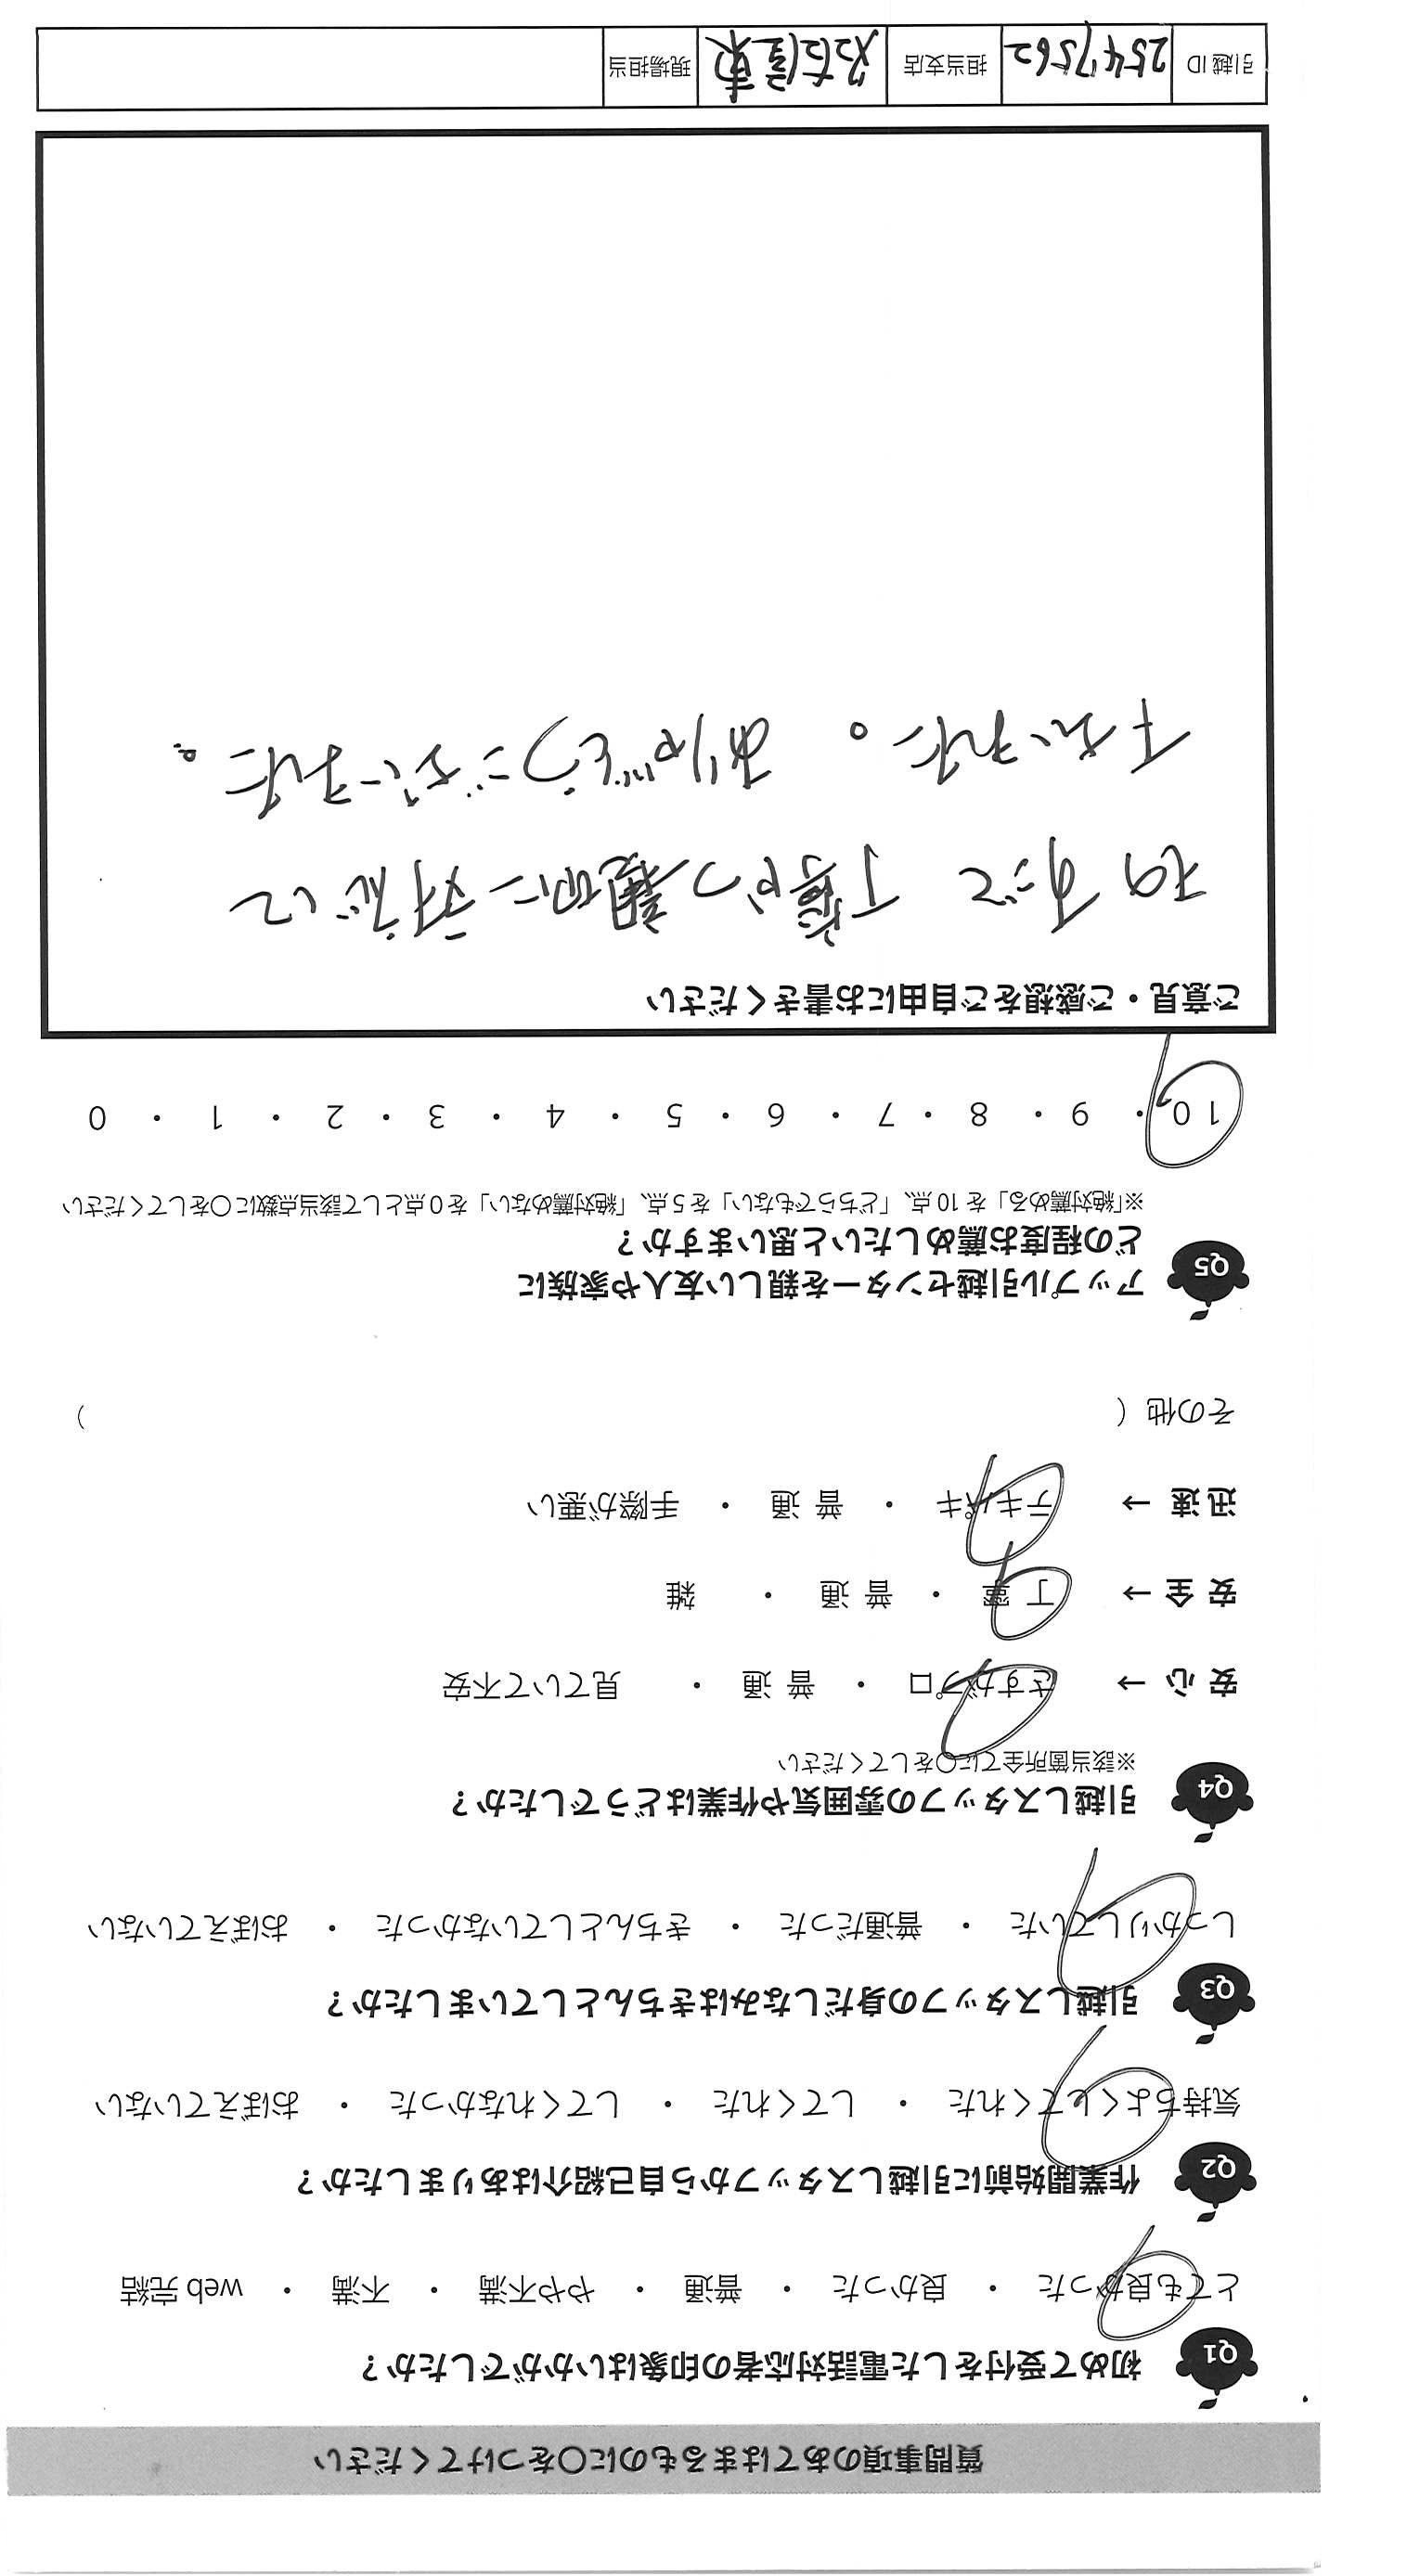 質問事項のあてはまるものに○をつけてください
Q1 初めて受付をした電話対応者の印象はいかがでしたか？
とても良かった ・ 良かった ・ 普通 ・ やや不満 ・ 不満 ・ web完結
Q2 作業開始前に引越しスタッフから自己紹介はありましたか？
気持ちよくしてくれた ・ してくれた ・ してくれなかった ・ おぼえていない
Q3 引越しスタッフの身だしなみはきちんとしていましたか？
しっかりしていた ・ 普通だった ・ きちんとしていなかった ・ おぼえていない
Q4 引越しスタッフの雰囲気や作業はどうでしたか？
※該当箇所全てに○をしてください
安心 → さすがプロ ・ 普通 ・ 見ていて不安
安全 → 丁寧 ・ 普通 ・ 雑
迅速 → テキパキ ・ 普通 ・ 手際が悪い
その他（ ）
Q5 アップル引越センターを親しい友人や家族に
どの程度お薦めしたいと思いますか？
※「絶対薦める」を10点、「どちらでもない」を5点、「絶対薦めない」を0点として該当点数に○をしてください
10 ・ 9 ・ 8 ・ 7 ・ 6 ・ 5 ・ 4 ・ 3 ・ 2 ・ 1 ・ 0
ご意見・ご感想をご自由にお書きください
すごく 丁寧かつ親切に対応して
下さいました。 ありがとうございました。
引越ID 2547562 担当支店 名古屋東 現場担当